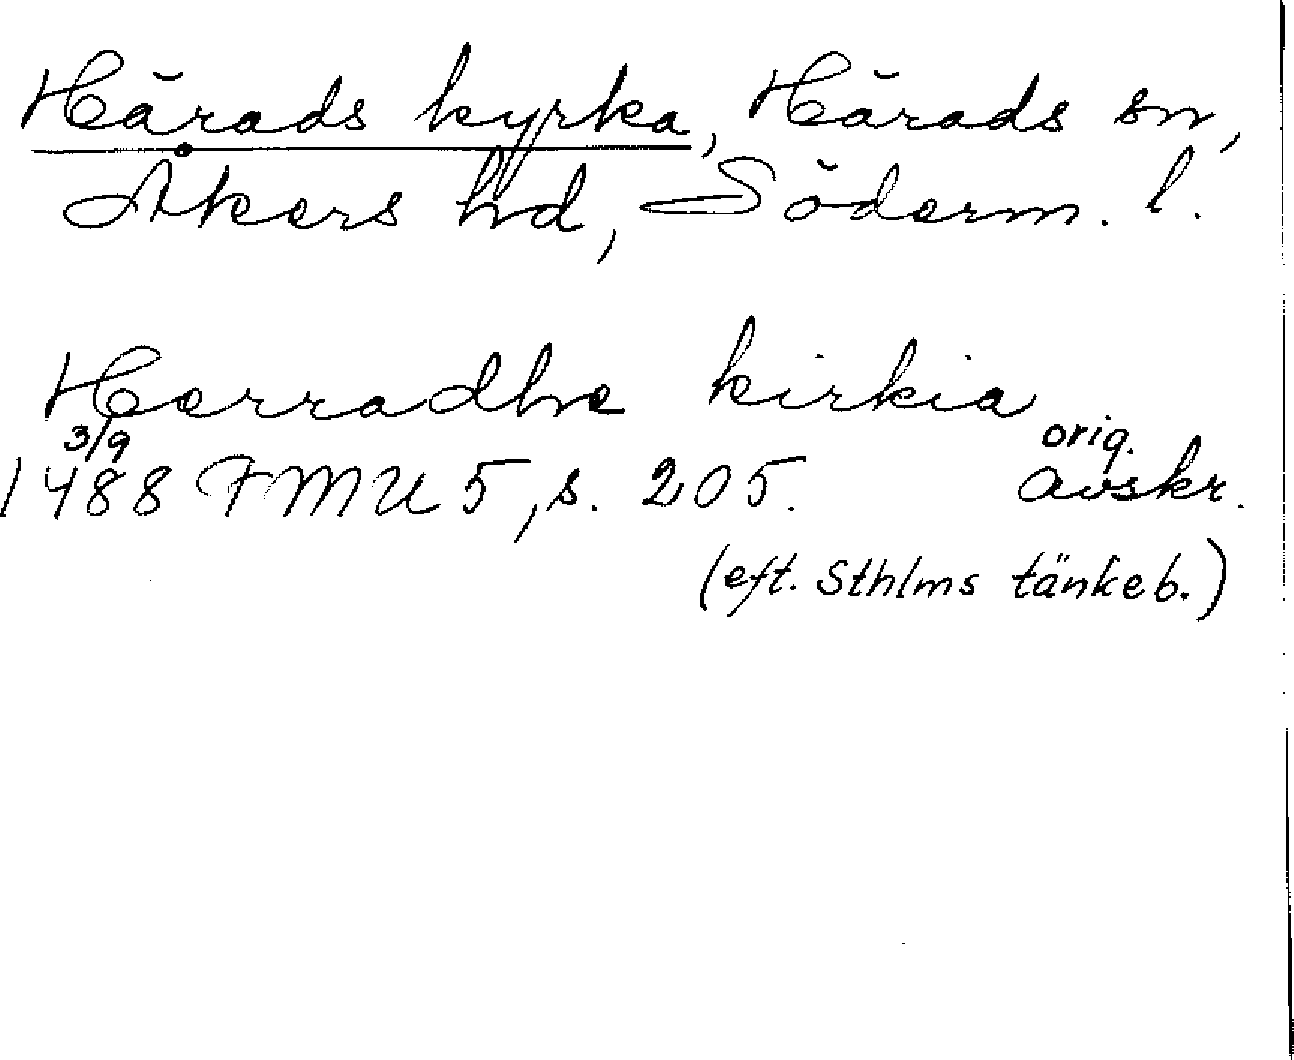 Härads kyrka, Härads sn,
Åkers hd, Söderm. l.
Herradhe kirkia
3/9 orig.
1488 FMU 5, s. 205. avskr.
(eft. Sthlms tänkeb.)